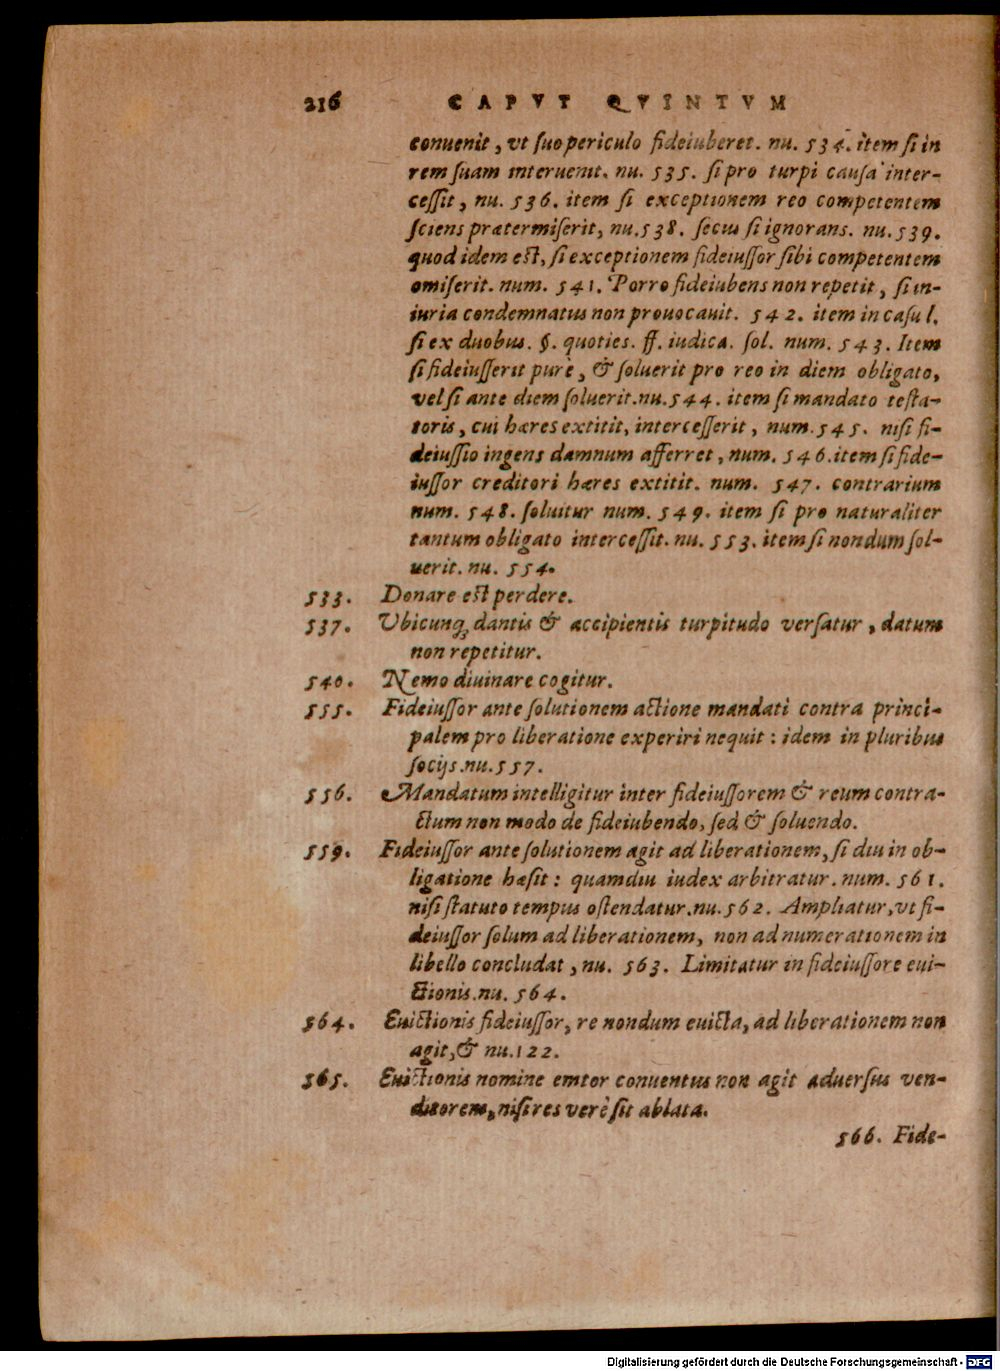 216 CAPVT QVINTVM
conuenit, vt suo periculo fideiuberet. nu. 534. item si in
rem suam interuenit. nu. 535. si pro turpi causa inter-
cessit, nu. 536. item si exceptionem reo competentem
sciens prætermiserit, nu. 538. secus si ignorans. nu. 539.
quod idem est, si exceptionem fideiussor sibi competentem
omiserit. num. 541. Porro fideiubens non repetit, si in-
iuria condemnatus non prouocauit. 542. item in casu l.
si ex duobus. §. quoties. ff. iudica. sol. num. 543. Item
si fideiusserit purè, & soluerit pro reo in diem obligato,
vel si ante diem soluerit. nu. 544. item si mandato testa-
toris, cui hæres extitit, intercesserit, num. 545. nisi fi-
deiussio ingens damnum afferret, num. 546. item si fide-
iussor creditori hæres extitit. num. 547. contrarium
num. 548. soluitur num. 549. item si pro naturaliter
tantum obligato intercessit. nu. 553. item si nondum sol-
uerit. nu. 554.
533. Donare est perdere.
537. Vbicunq; dantis & accipientis turpitudo versatur, datum
non repetitur.
540. Nemo diuinare cogitur.
555. Fideiussor ante solutionem actione mandati contra princi-
palem pro liberatione experiri nequit: idem in pluribus
socijs. nu. 557.
556. Mandatum intelligitur inter fideiussorem & reum contra-
ctum non modo de fideiubendo, sed & soluendo.
559. Fideiussor ante solutionem agit ad liberationem, si diu in ob-
ligatione hæsit: quamdiu iudex arbitratur. num. 561.
nisi statuto tempus ostendatur. nu. 562. Ampliatur, vt fi-
deiussor solum ad liberationem, non ad numerationem in
libello concludat, nu. 563. Limitatur in fideiussore eui-
ctionis. nu. 564.
564. Euictionis fideiussor, re nondum euicta, ad liberationem non
agit, & nu. 122.
565. Euictionis nomine emtor conuentus non agit aduersus ven-
ditorem, nisi res verè sit ablata.
566. Fide-
Digitalisierung gefördert durch die Deutsche Forschungsgemeinschaft - DFG